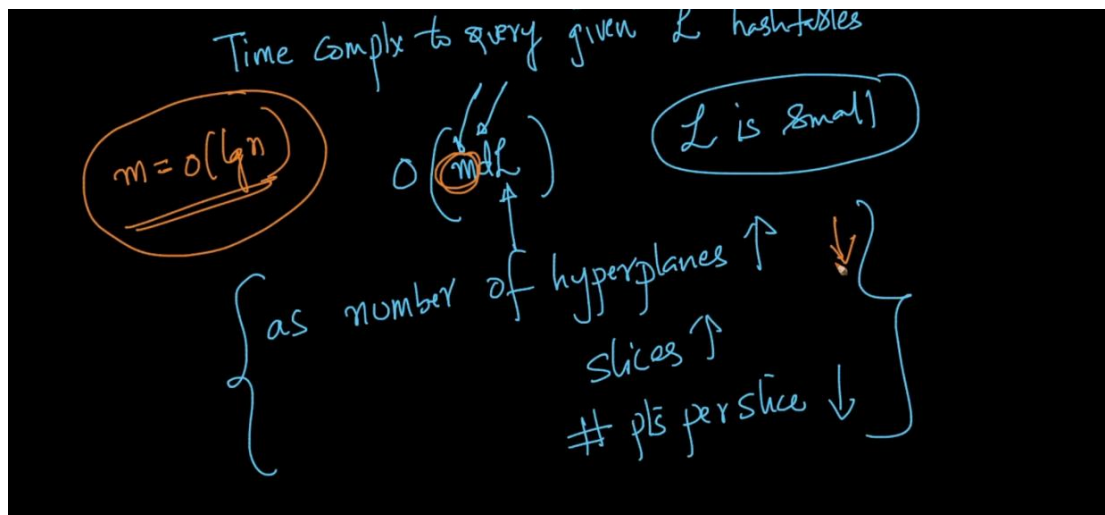 Time Complx to query given L hashtables
m = O(lgn)
O(mdL)
L is small
as number of hyperplanes ↑ ↓
slices ↑
# pts per slice ↓